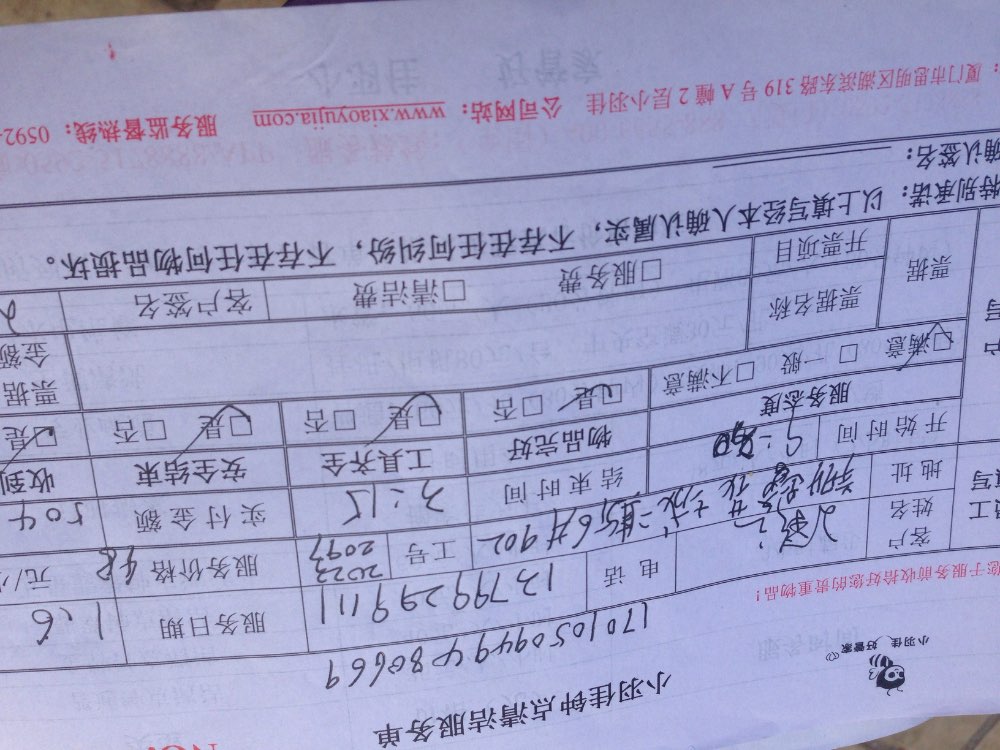 NO.
小羽佳 好管家
小羽佳钟点清洁服务单
1701050949480669
您于服务前收拾好您的贵重物品!
客户姓名
电话 13799299111
服务日期 1.6
地址
6# 902
工号 2023 2097
服务价格 48 元/小
开始时间 9:00
结束时间 3:15
实付金额 504
服务态度
物品完好
工具齐全
安全结束
收到
□满意 □一般 □不满意
□是 □否
□是 □否
□是 □否
□是
票据
票据名称
票据金额
开票项目
□服务费 □清洁费
客户签名
特别承诺:以上填写经本人确认属实,不存在任何纠纷,不存在任何物品损坏。
确认签名:
:厦门市思明区湖滨东路319号A幢2层小羽佳 公司网站:www.xiaoyujia.com 服务监督热线:0592-